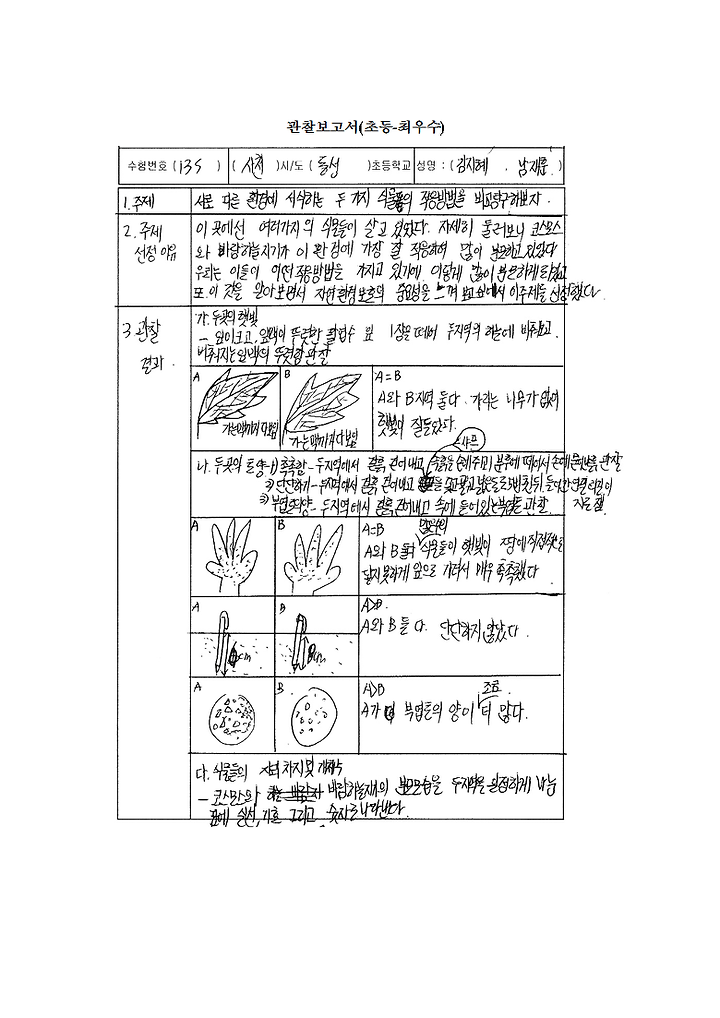 관찰보고서(초등-최우수)
수험번호 (135) (사천)시/도 (동성)초등학교 성명 : (김지혜 . 남재륜.)
1.주제 서로 다른 환경에 서식하는 두 가지 식물들의 적응방법을 비교탐구해보자.
2. 주제 선정 이유
이 곳에선 여러가지의 식물들이 살고 있었다. 자세히 둘러보니 코스모스
와 바랭하늘지기가 이 환경에 가장 잘 적응하여 많이 분포하고 있었다
우리는 이들이 어떤적응방법을 가지고 있기에 이렇게 많이 분포하게 되었고
또 이것을 알아보면서 자연환경보호의 중요성을 느껴 보고싶어서 이주제를 선정했다.
3 관찰 결과.
가. 두곳의 햇빛
- 잎이크고, 잎맥이 뚜렷한 잎 1장을 떼어 두지역의 하늘에 비춰보고.
비춰지는잎맥의 뚜렷함 관찰
A
B
가는맥까지 다보임
가는맥까지 다보임
A=B
A와 B지역 둘다. 가리는 나무가 없어
햇빛이 잘들었다.
나. 두곳의 토양-1) 축축함 - 두지역에서 흙을 걷어내고 속흙을 손에 관찰
2) 단단하기 - 두지역에서 걷어내고
3) 부엽토의양 - 두지역에서 걷어내고 속에 들어있는부엽토 관찰. 자로 잼.
A
B
A=B
A와 B 둘다 식물들이 햇빛이 땅에 직접적으로
닿지못하게 앞으로 가려서 매우 축축했다
A
B
cm
cm
A>B.
A와 B 둘 다. 단단하지 않았다.
A
B
A>B 조금.
A가 부엽토의 양이 더 많다.
다. 식물들의 개체수
- 코스모스와 바랭하늘지기의 분포모습을 두지역을 일정하게 나눔
표에 실선, 기호 그리고 숫자로 나타낸다.